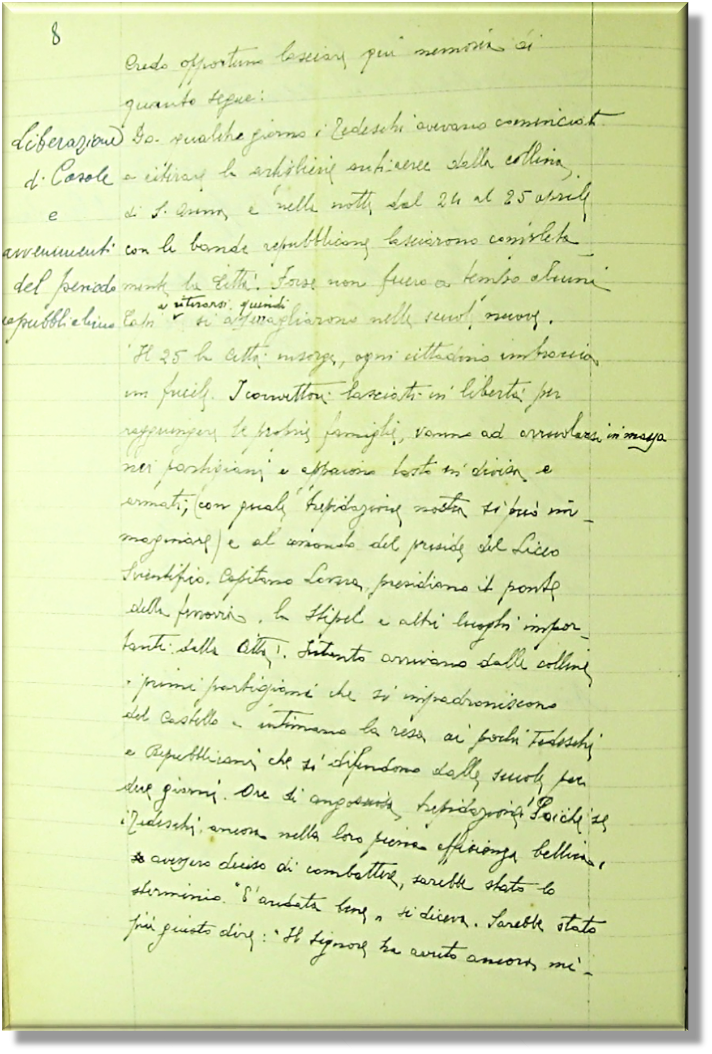 8
Credo opportuno lasciare qui memoria di
quanto segue:
Liberazione
di Casale
e
avvenimenti
del periodo
repubblicano
Da qualche giorno i Tedeschi avevano cominciato
a ritirare le artiglierie antiaeree dalla collina
di S. Anna e nelle notte dal 24 al 25 aprile
con le bande repubblicane lasciarono completa-
mente la Città. Forse non fuero a tempo alcuni
a ritirarsi, quindi
si asserragliarono nelle scuole nuove.
Il 25 la Città insorge, ogni cittadino imbraccia
un fucile. I convittori lasciati in libertà per
raggiungere le proprie famiglie, vanno ad arruolarsi in massa
nei partigiani e appaiono tosto in divisa e
armati, (con quale trepidazione nostra si può im-
maginare) e al comando del preside del Liceo
Scientifico, Capitano Lavera, presidiano il ponte
della ferrovia, la Stipel e altri luoghi impor-
tanti della Città. Intanto arrivano dalle colline
i primi partigiani che si impadroniscono
del Castello e intimano la resa ai pochi Tedeschi
e Repubblicani che si difendono dalle scuole per
due giorni. Ore di angosciosa trepidazione! Poiché se
i Tedeschi, ancora nella loro piena efficienza bellica,
avessero deciso di combattere, sarebbe stato lo
sterminio. "È andata bene" si diceva. Sarebbe stato
più giusto dire: "Il Signore ha avuto ancora mi-